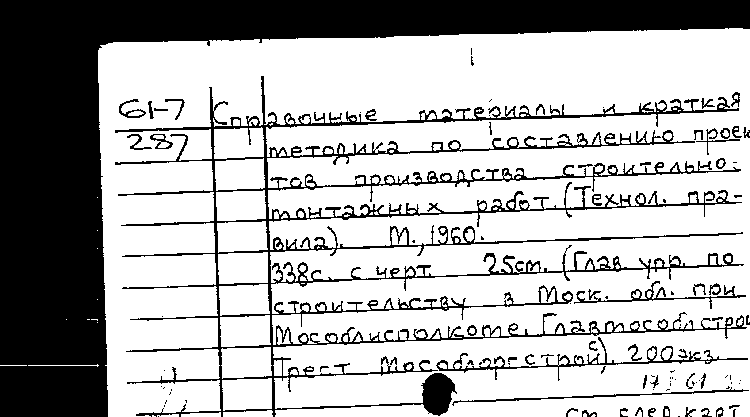 61-7
287
Справочные материалы и краткая
методика по составлению проек
тов производства строительно-
монтажных работ. (Технол. пра-
вила). М., 1960.
338с. с черт. 25см. (Глав. упр. по
строительству в Моск. обл. при
Мособлисполкоме. Главмособлстрой
Трест Мособлоргстрой). 200экз.
см. след. карт.